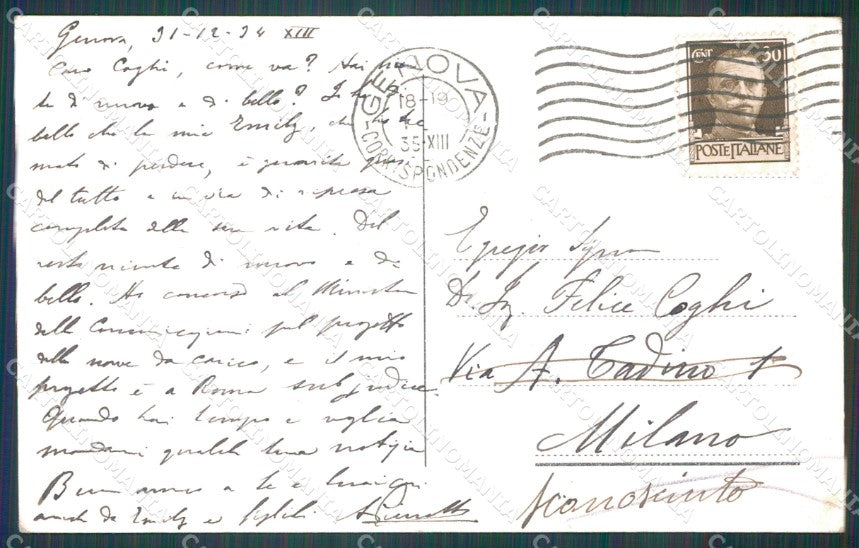 Genova, 31-12-34 XIII
Caro Coghi, come va? Hai
te di nuovo e di bello? Io ho di
bello che la mia Emily, che
mato di perdere, è guarita quasi
del tutto e in via di ripresa
completa della sua vita. Del
resto niente di nuovo e di
bello. Ho concorso al Ministero
delle Comunicazioni pel progetto
delle nuove da carico, e il mio
progetto è a Roma sub judice.
Quando hai tempo e voglia
mandami qualche tua notizia
Buon anno a te e tuoi
anche da Emily e figlioli
GENOVA
18-19
35-XIII
CORRISPONDENZE
CENT 30
POSTE ITALIANE
Egregio Signor
Dr. Ing. Felice Coghi
Via A. Tadino 1
Milano
sconosciuto
CARTOLINOMANIA